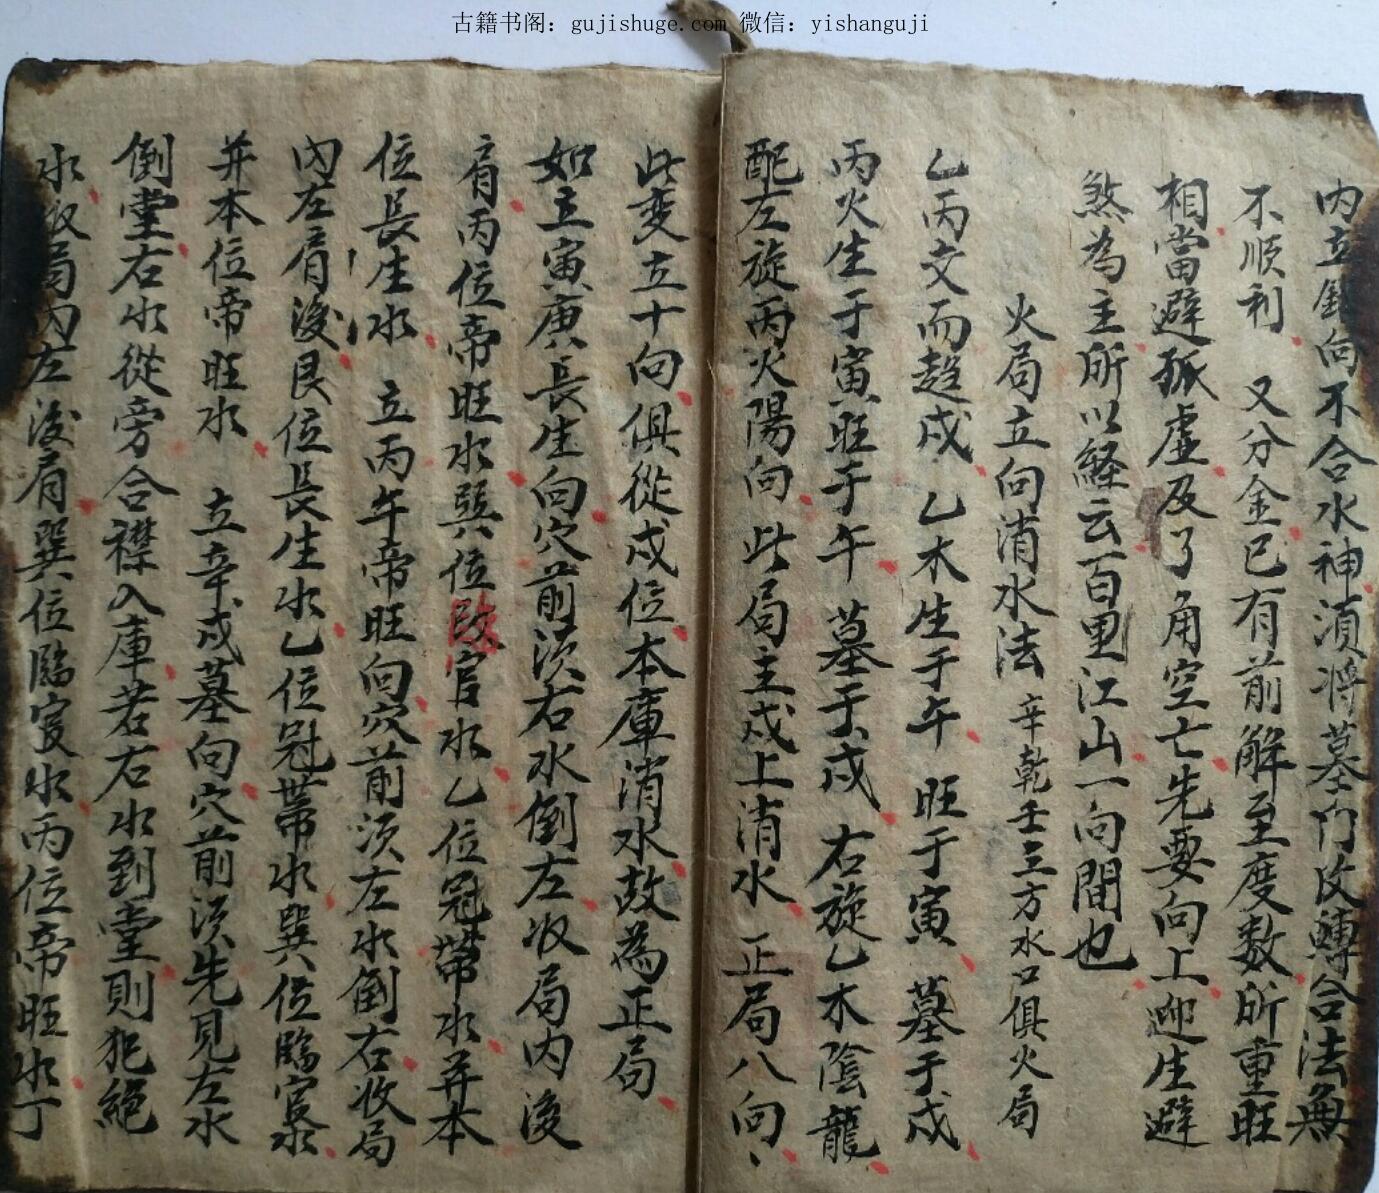 古籍书阁：gujishuge.com 微信：yishanguji
内立向不合水神須将墓门改轉合法無
不順利 又分金已有前解至度数所重旺
相當避孤虛及了角空亡先要向上迎生避
煞為主所以経云百里江山一向間也
火局立向消水法 辛乾壬三方水口俱火局
乙丙交而趋戍 乙木生于午 旺于寅 墓于戍
丙火生于寅旺于午 墓于戍 右旋乙木陰龍
配左旋丙火陽向 此局主戍上消水 正局八向
此变立十向俱從戍位本庫消水故為正局
如立寅庚長生向穴前湏右水倒左收局内後
肩丙位帝旺水巽位官水乙位冠帶水并本
位長生水 立丙午帝旺向穴前湏左水倒右收局
内左肩後艮位長生水乙位冠帶水巽位臨官水
并本位帝旺水 立辛戍墓向穴前湏先見左水
倒堂右水從旁合襟入庫若右水到堂則犯絕
水收局内左後肩巽位臨官水丙位帝旺水丁